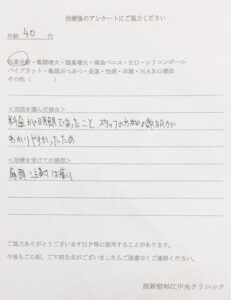 治療後のアンケートにご協力ください
年齢 40 代
包茎手術・亀頭増大・陰茎増大・長茎ペニス・ED・シリコンボール
パイプカット・亀頭ぶつぶつ・長茎・性病・早漏・HARG療法
その他（ ）
＜当院を選んだ理由＞
料金が明朗であったこと スタッフの方の説明が
わかりやすかったため
＜治療を受けての感想＞
麻酔注射は痛い
ご協力ありがとうございますHP等に使用することがあります。
今後もご心配、ご不明な点がございましたらご遠慮なくご連絡ください。
西新宿杉江中央クリニック